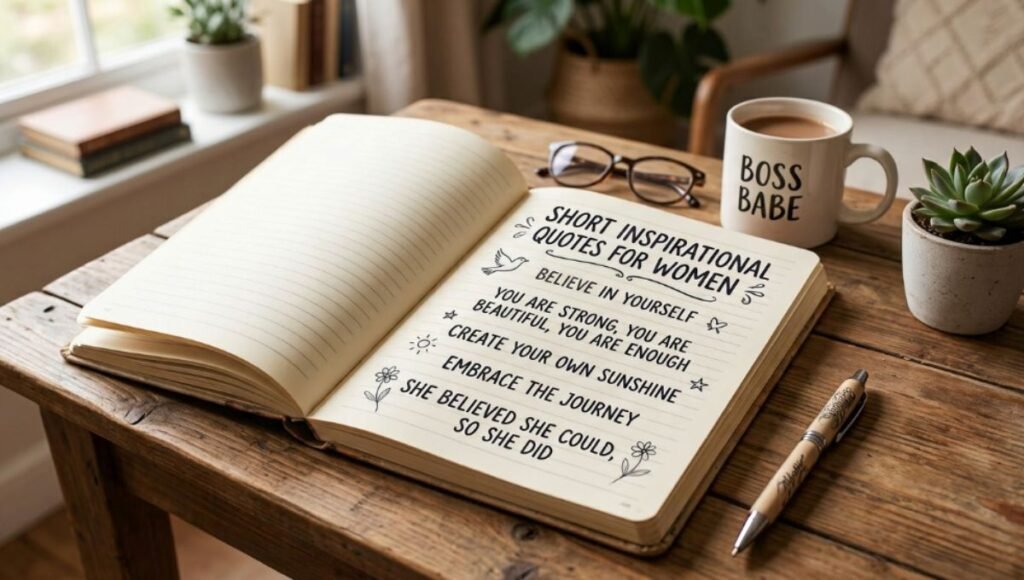 SHORT INSPIRATIONAL
QUOTES FOR WOMEN
BELIEVE IN YOURSELF
YOU ARE STRONG, YOU ARE
BEAUTIFUL, YOU ARE ENOUGH
CREATE YOUR OWN SUNSHINE
EMBRACE THE JOURNEY
SHE BELIEVED SHE COULD,
SO SHE DID
BOSS
BABE